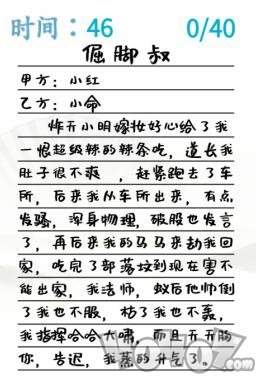 时间：46 0/40
倔脚叔
甲方：小红
乙方：小命
炸开小明嫁妆好心给了我
一恨超级棘的辣条吃，道长我
肚子很不爽，赶紧跑去了车
所，后来我从车所出来，有点
发骚，浑身物理，破股也发言
了，再后来我的马马来劫我回
家，吃完了部落坟到现在害不
能出家，我法师，蚁后他帅倒
了我也不服，枯了我也不轰，
我指挥哈哈大啸，而且天天胸
你，告迟，我蒸的升气了。